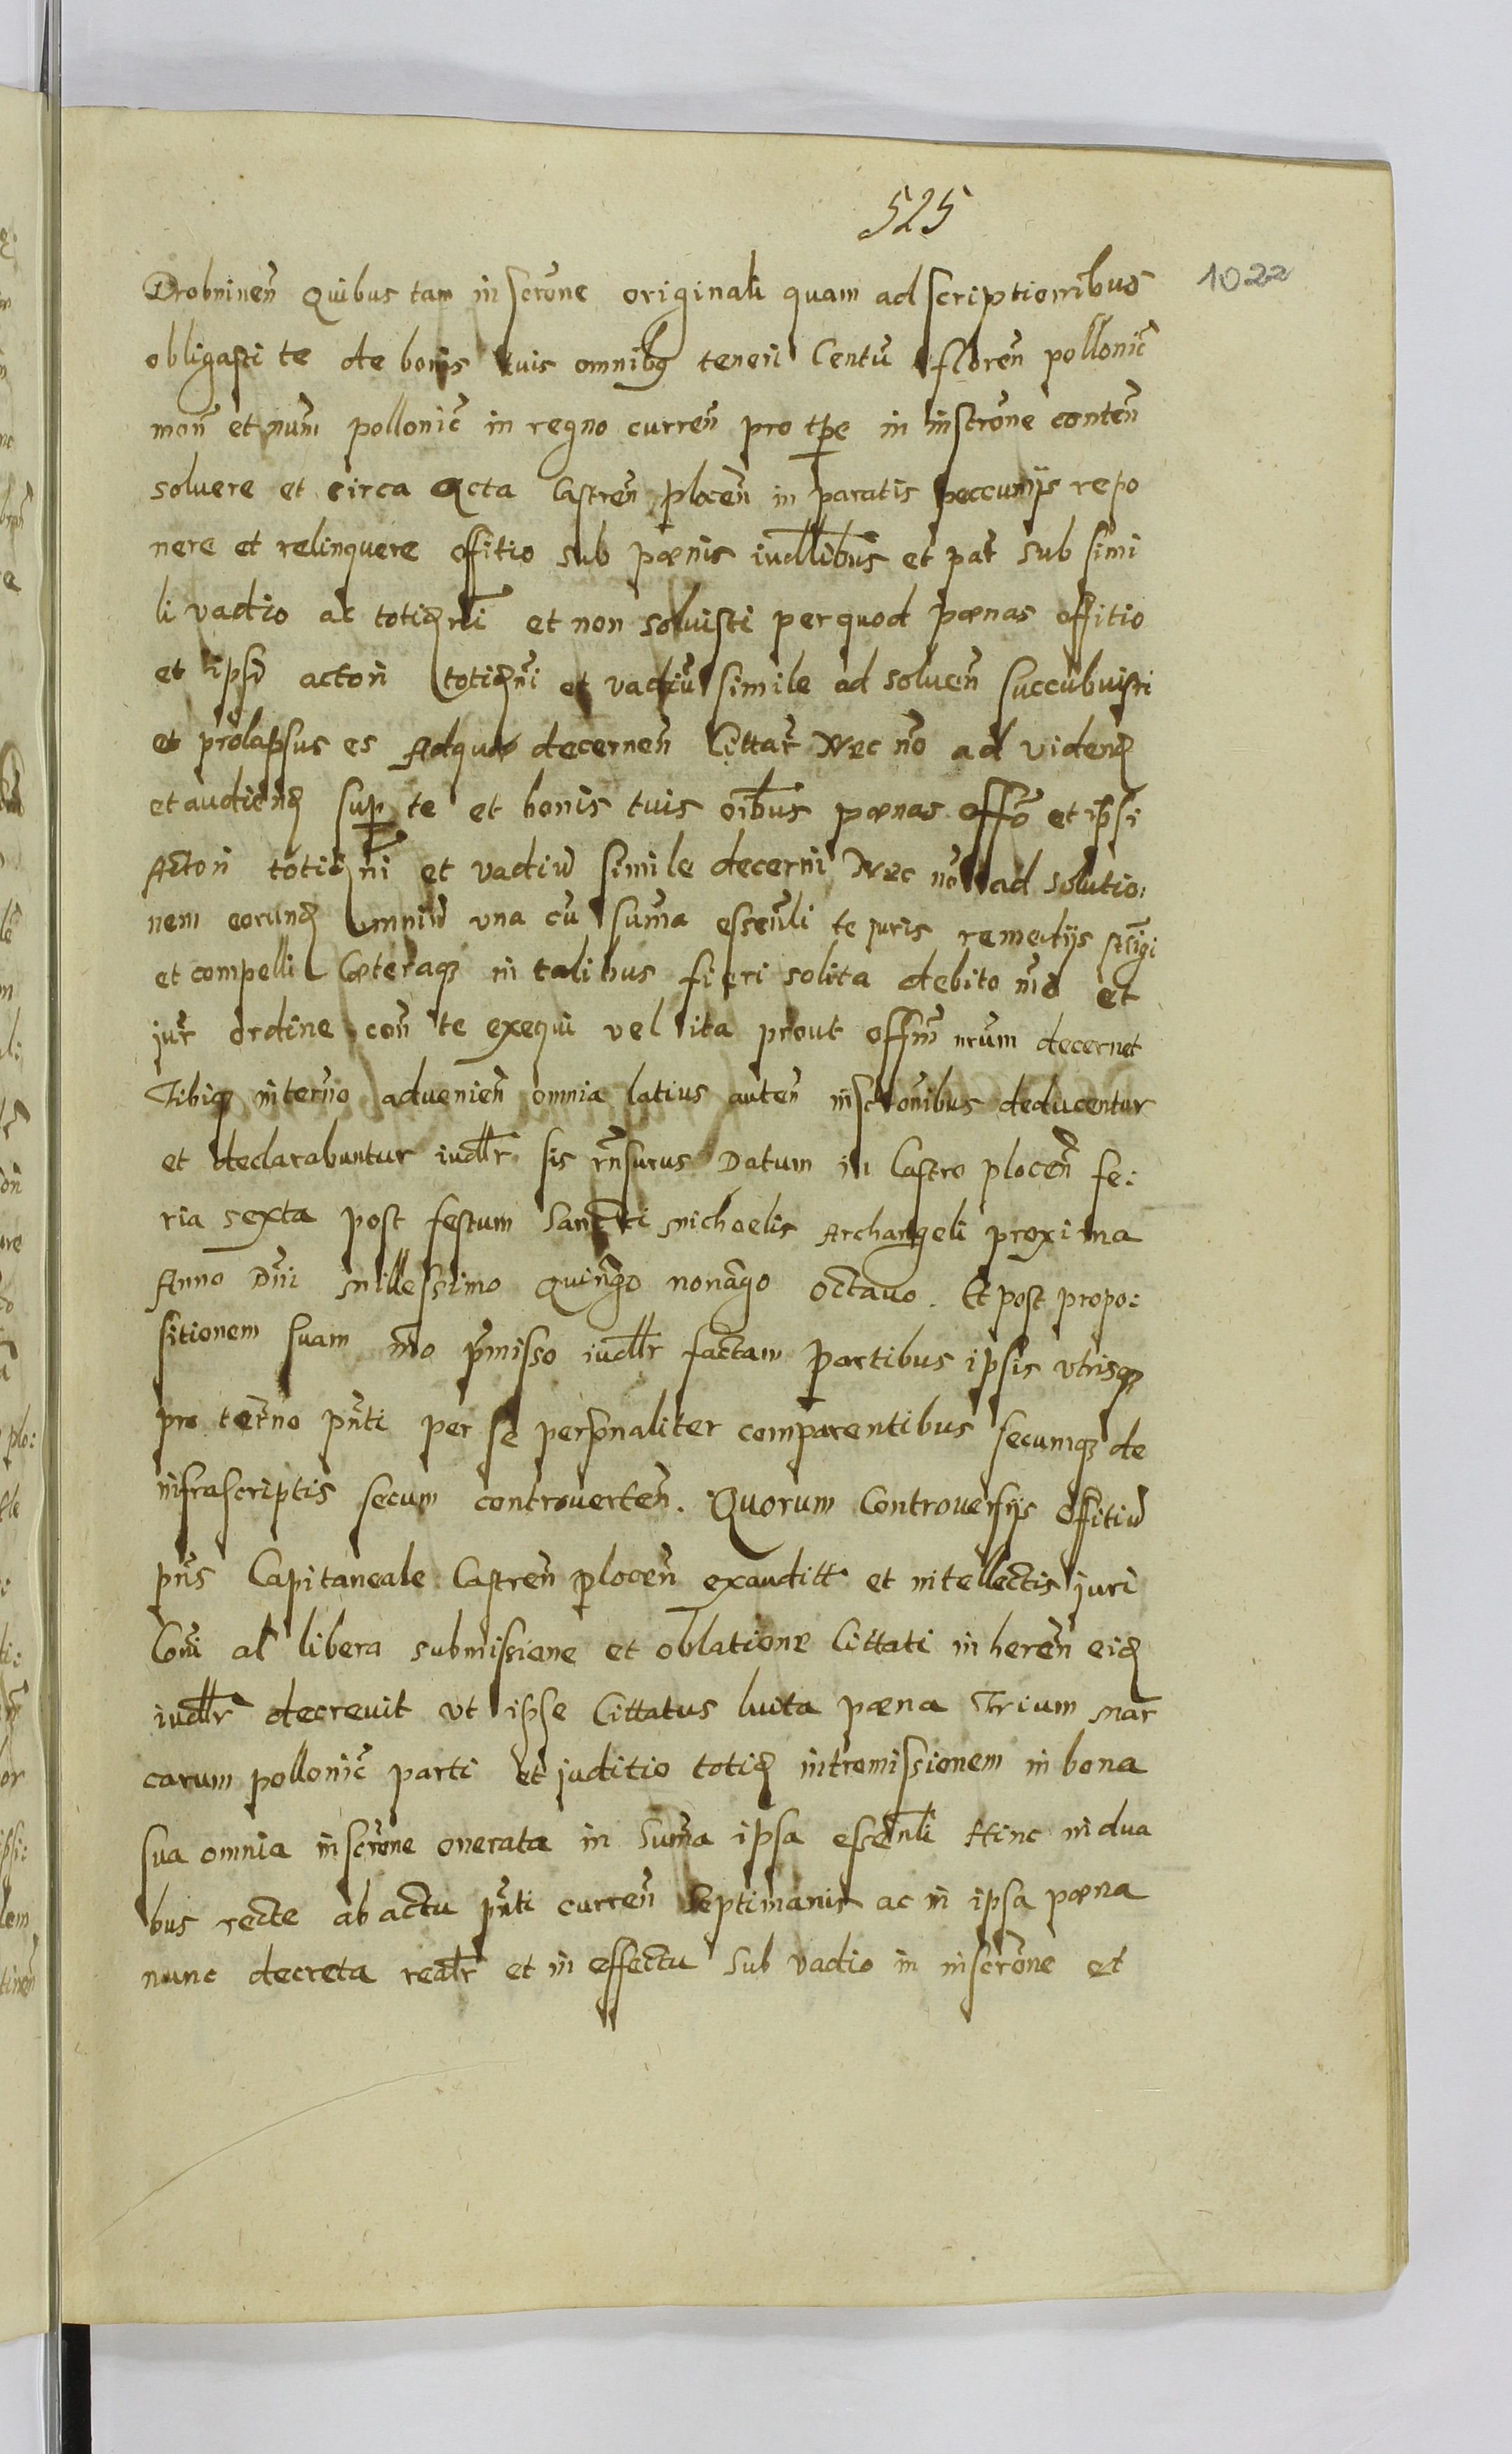 525
1022
Drobninen̄ Quibus tam inscrōne originali quam adscriptionibus
obligasti te de bonis tuis omnibq teneri Centū floren̄ pollonic̄
mon̄ et num̄ pollonic̄ in regno curren̄ pro tp̄e in inscrōne conten̄
soluere et circa Acta Castren̄ plocen̄ in paratis peccunijs repo
nere et relinquere offitio sub pœnis iudl̄ibus et pat̄ sub simi
li vadio ac totidē et non soluisti per quod pœnas offitio
et ipsi actori totidē et vadiū simile ad soluen̄ succubuisti
et prolapsus es Adquæ decernen̄ Cittar̄ Nec nō ad videnđ
et audienđ sup te et bonis tuis oib̄us pœnas offō et ipsi
Actori totidē et vadiū simile decerni Nec nō ad solutio:
nem eorunđ omniū una cū sum̄a essen̄li te juris remedijs
et compelli Cæteraq̨ in talibus fieri solita debito mō et
jur̄ ordine con̄ te exequi vel ita prout offm̄ nrūm decernet
Tibiq̨ in ter̄no aduenien̄ omnia latius auten̄ inscrōnibus deducentur
et declarabuntur iudl̄r sis rn̄surus Datum in Castro plocen̄ fe:
ria sexta post festum Sancti Michaelis Archangeli proxima
Anno Dn̄i Millessimo Quingō nonagō octauo. Et post propo:
sitionem suam mō p̄misso iudl̄r factam Partibus ipsis utrisq̨
pro ter̄no pn̄ti per se personaliter comparentibus secumq̨ de
infrascriptis secum controuerten̄. Quorum Controuersijs Offitiū
pn̄s Capitaneale Castren̄ plocen̄ exauditt̄ et intellectis juri
Com̄i ac libera submissione et oblatione Cittati inheren̄ eiđ
iudl̄r decreuit ut ipse Cittatus luita pœna Trium Mar
carum pollonic̄ parti et juditio totiđ intromissionem in bona
sua omnia inscrōne onerata in sum̄a ipsa essen̄li Hinc in dua
bus recte ab actu pn̄ti curren̄ septimanis ac in ipsa pœna
nunc decreta realr̄ et in effectu sub vadio in inscrōne et